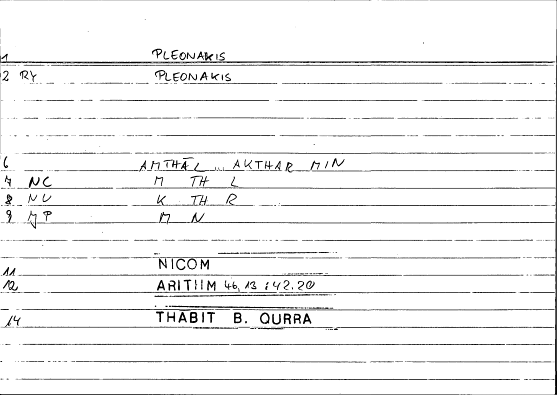 1 PLEONAKIS
2 RY PLEONAKIS
6 AMTHĀL ... AKTHAR MIN
7 NC M TH L
8 NU K TH R
9 MP M N
11 NICOM
12 ARITHM 46,13 : 42.20
14 THABIT B. QURRA